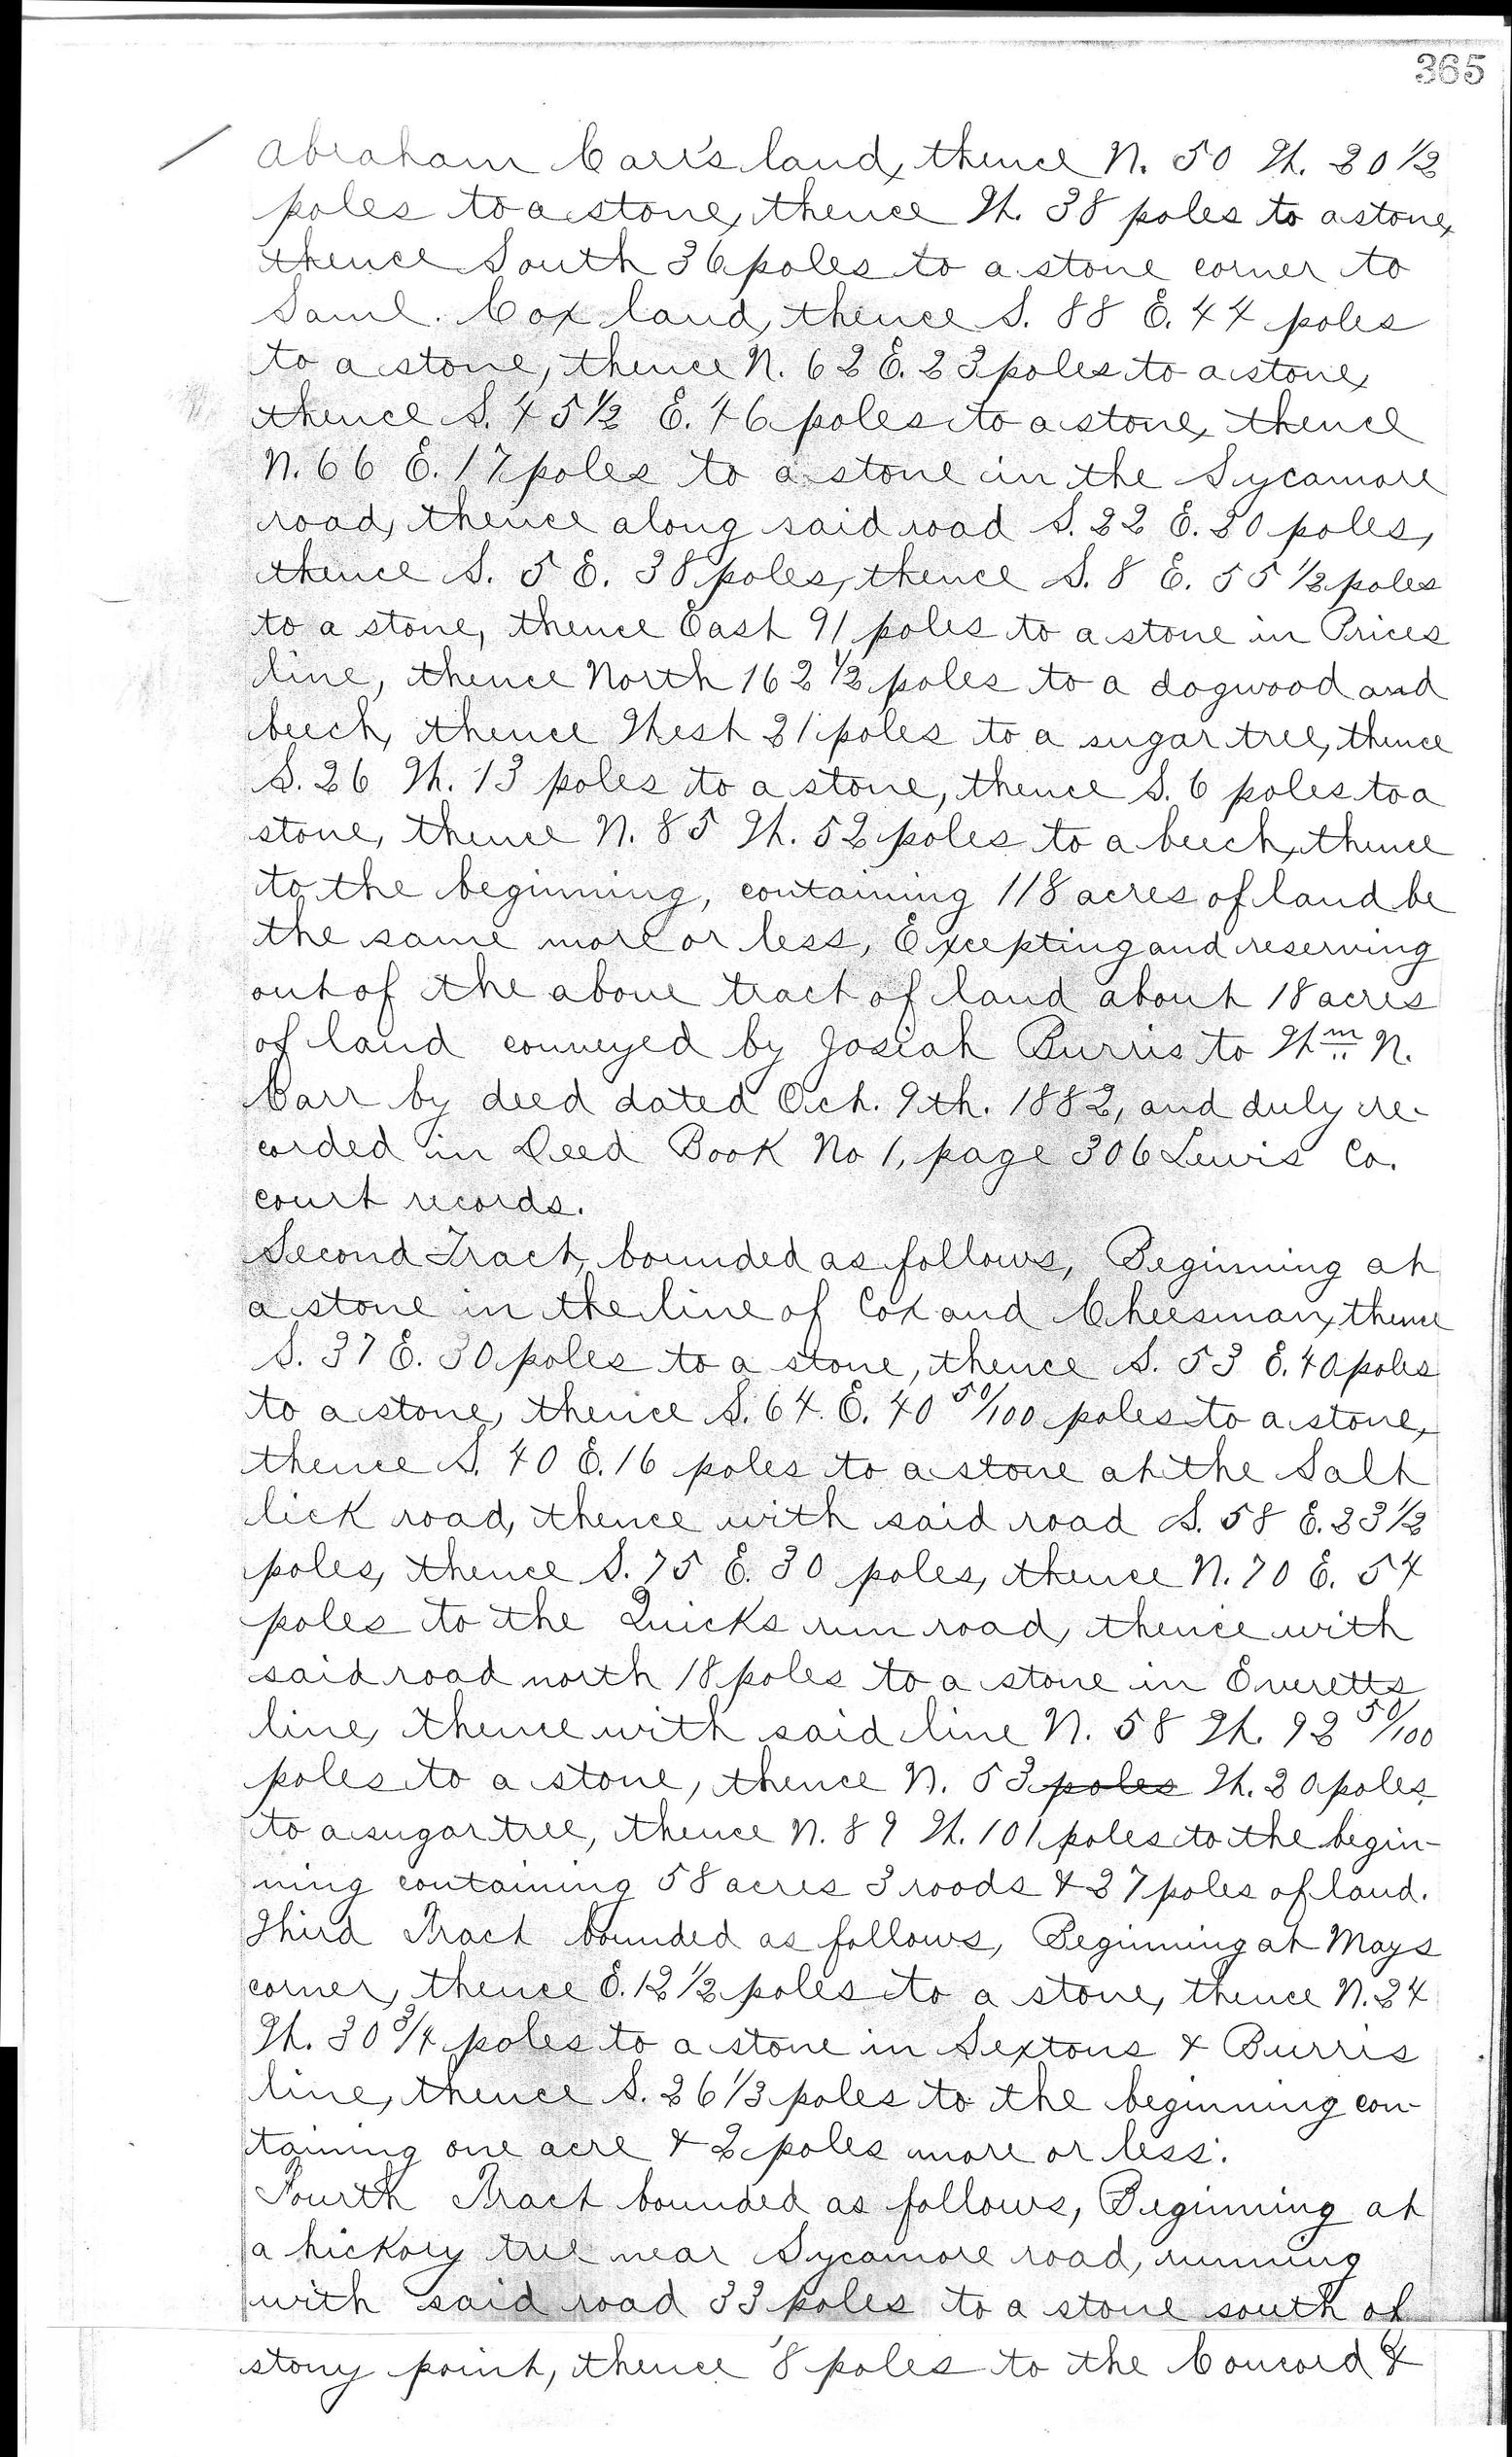 365
Abraham Carr's land, thence N. 50 W. 20 1/2
poles to a stone, thence W. 38 poles to a stone,
thence South 36 poles to a stone corner to
Saml. Cox land, thence S. 88 E. 44 poles
to a stone, thence N. 62 E. 23 poles to a stone,
thence S. 45 1/2 E. 46 poles to a stone, thence
N. 66 E. 17 poles to a stone in the Sycamore
road, thence along said road S. 22 E. 20 poles,
thence S. 5 E. 38 poles, thence S. 8 E. 55 1/2 poles
to a stone, thence East 91 poles to a stone in Prices
line, thence North 162 1/2 poles to a dogwood and
beech, thence West 21 poles to a sugar tree, thence
S. 26 W. 13 poles to a stone, thence S. 6 poles to a
stone, thence N. 85 W. 52 poles to a beech, thence
to the beginning, containing 118 acres of land be
the same more or less, Excepting and reserving
out of the above tract of land about 18 acres
of land conveyed by Josiah Burris to Wm N.
Carr by deed dated Oct. 9th. 1882, and duly re-
corded in Deed Book No 1, page 306 Lewis Co.
court records.
Second Tract, bounded as follows, Beginning at
a stone in the line of Cox and Cheesman, thence
S. 37 E. 30 poles to a stone, thence S. 53 E. 40 poles
to a stone, thence S. 64. E. 40 50/100 poles to a stone,
thence S. 40 E. 16 poles to a stone at the Salt
lick road, thence with said road S. 58 E. 23 1/2
poles, thence S. 75 E. 30 poles, thence N. 70 E. 54
poles to the Quicks run road, thence with
said road north 18 poles to a stone in Everetts
line, thence with said line N. 58 W. 92 50/100
poles to a stone, thence N. 53 poles W. 20 poles
to a sugar tree, thence N. 89 W. 101 poles to the begin-
ning containing 58 acres 3 roods & 27 poles of land.
Third Tract bounded as follows, Beginning at Mays
corner, thence E. 12 1/2 poles to a stone, thence N. 24
W. 30 3/4 poles to a stone in Sextons & Burris
line, thence S. 26 1/3 poles to the beginning con-
taining one acre & 2 poles more or less.
Fourth Tract bounded as follows, Beginning at
a hickory tree near Sycamore road, running
with said road 33 poles to a stone south of
stony point, thence 8 poles to the Concord &